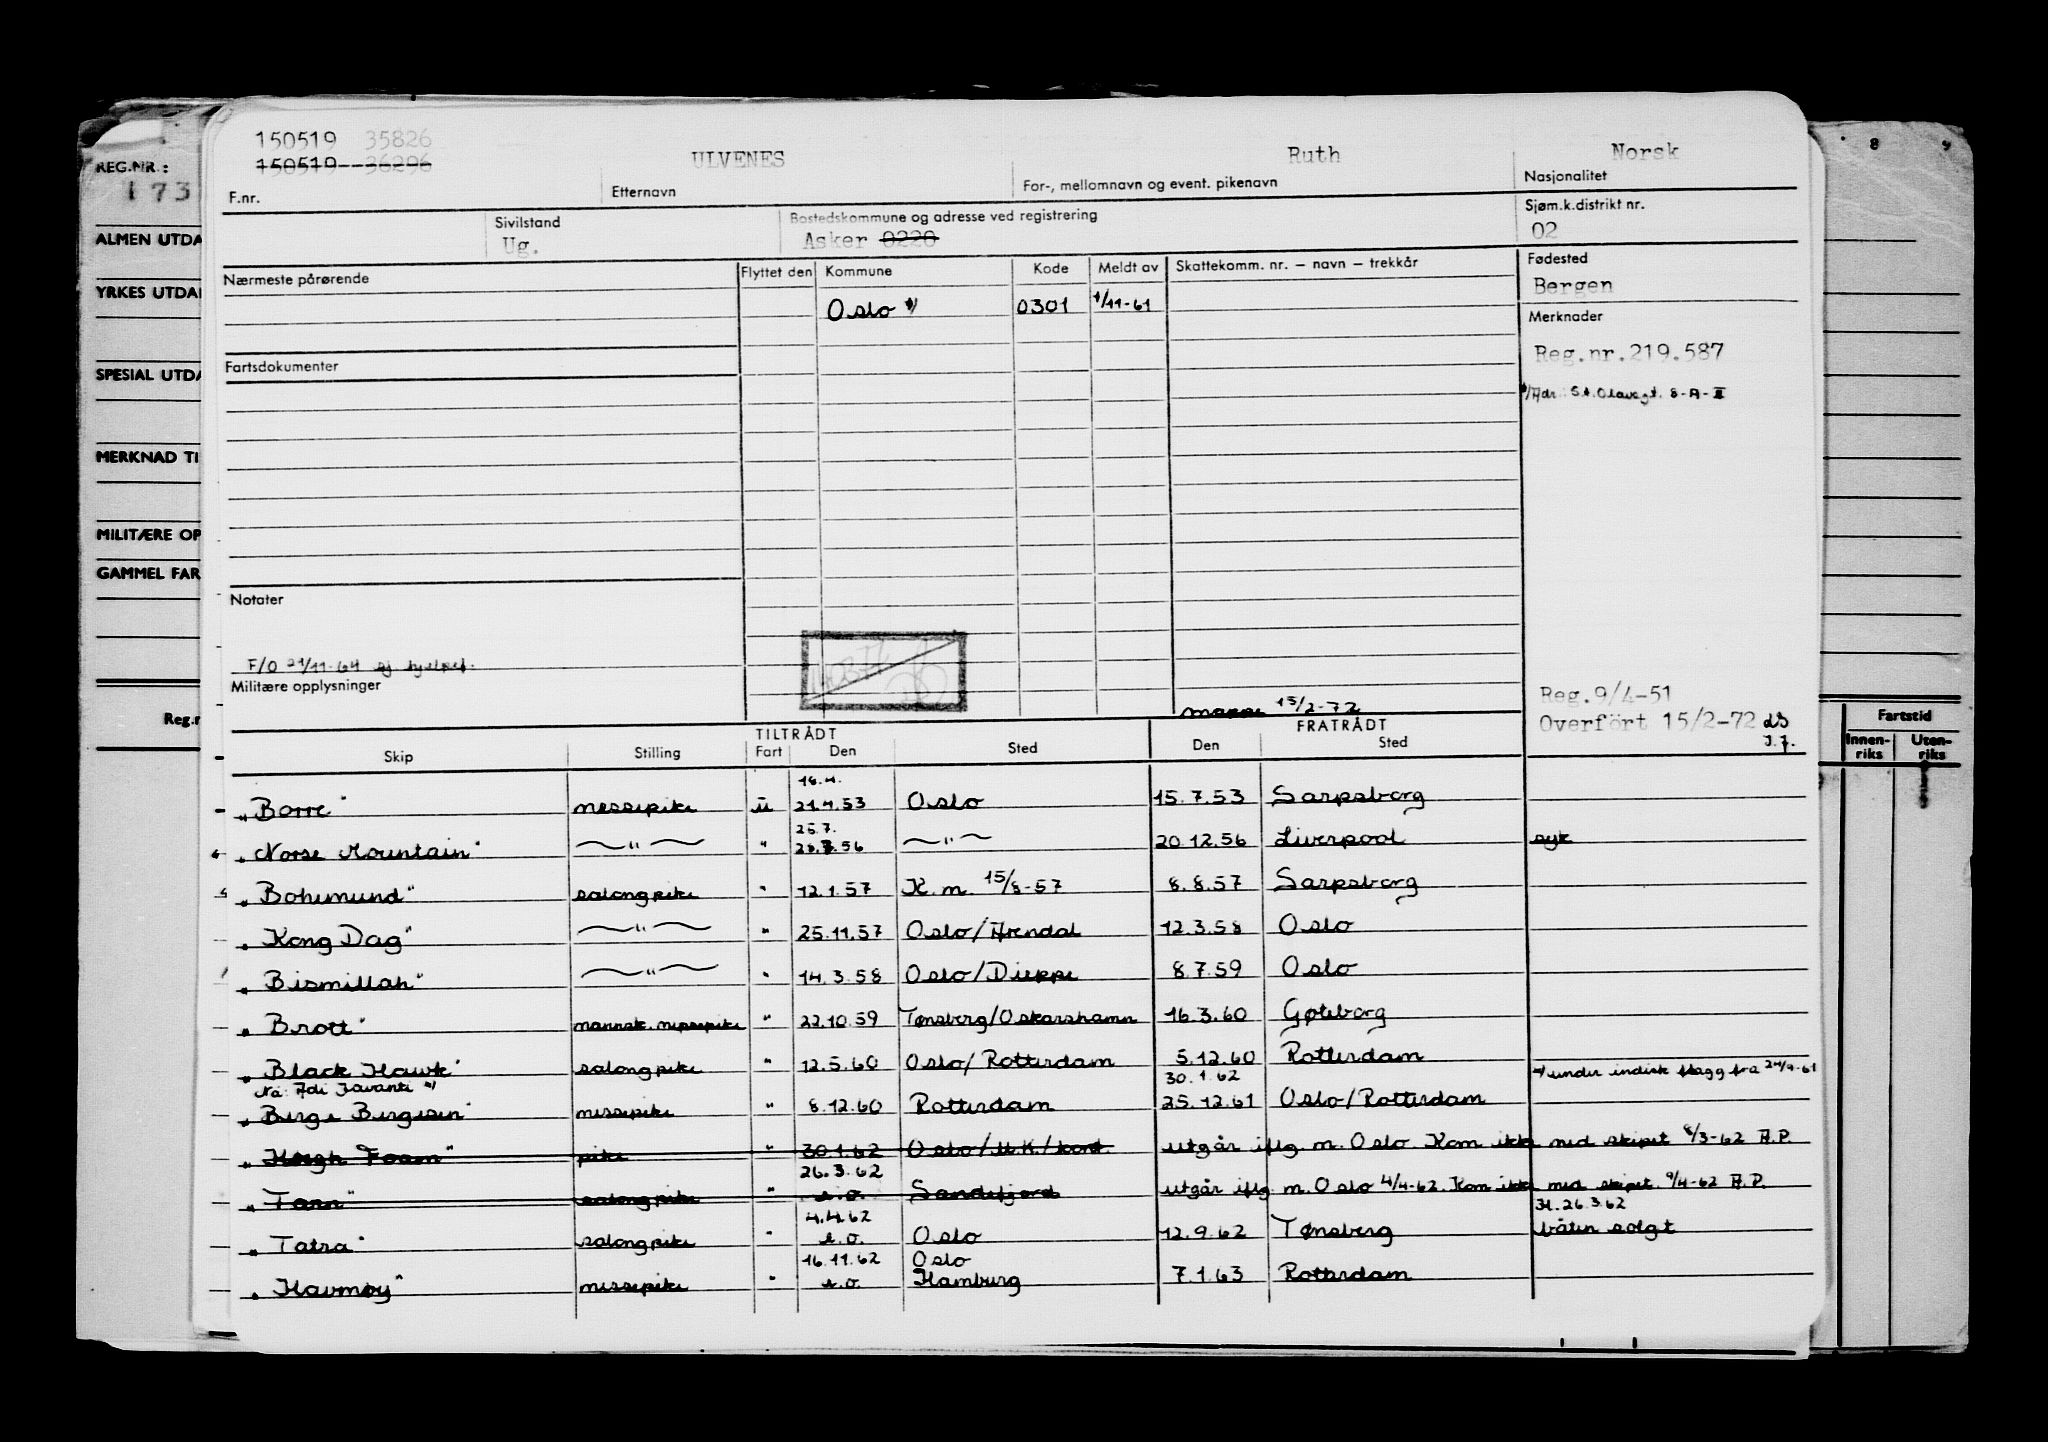 150519 35826
150519 36296
ULVENES
Ruth
Norsk
F.nr.
Etternavn
For-, mellomnavn og event. pikenavn
Nasjonalitet
Sivilstand
Ug.
Bostedskommune og adresse ved registrering
Asker 0220
Sjøm.k.distrikt nr.
02
Nærmeste pårørende
Flyttet den
Kommune
Kode
Meldt av
Skattekomm. nr. – navn – trekkår
Fødested
Bergen
Oslo
0301
1/11-61
Merknader
Reg.nr.219.587
Adr. St. Olavsgt. 8-A-III
Fartsdokumenter
Notater
F/O 21/11-64
Militære opplysninger
mappe 15/2-72
Reg.9/4-51
Overført 15/2-72
J.J.
TILTRÅDT
FRATRÅDT
Skip Stilling Fart Den Sted Den Sted
16.4.
"Borre" messepike u 21.4.53 Oslo 15.7.53 Sarpsborg
25.7.
"Norse Mountain" —"— " 28.7.56 —"— 20.12.56 Liverpool syk
"Bohemund" salongpike " 12.1.57 K.m. 15/8-57 8.8.57 Sarpsborg
"Kong Dag" —"— " 25.11.57 Oslo/Arendal 12.3.58 Oslo
"Bismillah" —"— " 14.3.58 Oslo/Dieppe 8.7.59 Oslo
"Brott" mannsk.messepike " 22.10.59 Tønsberg/Oskarshamn 16.3.60 Gøteborg
"Black Hawk" salongpike " 12.5.60 Oslo/Rotterdam 5.12.60 Rotterdam
Nå: Adi Jayanti 30.1.62 under indisk flagg fra 24/9-61
"Berge Bergesen" messepike " 8.12.60 Rotterdam 25.12.61 Oslo/Rotterdam
"Høegh Foam" pike " 30.1.62 Oslo/U.K/kont. utgår iflg. m. Oslo. Kom ikke med skipet 8/3-62 A.P.
26.3.62
"Tarn" salongpike " e.o. Sandefjord utgår iflg. m. Oslo 4/4-62. Kom ikke med skipet. 9/4-62 A.P.
4.4.62 H. 26.3.62
"Tatra" salongpike " e.o. Oslo 12.9.62 Tønsberg båten solgt
16.11.62 Oslo
"Havmøy" messepike " e.o. Hamburg 7.1.63 Rotterdam
REG.NR.:
173
ALMEN UTDA
YRKES UTDA
SPESIAL UTDA
MERKNAD TI
MILITÆRE OP
GAMMEL FAR
Reg.n
8 9
Fartstid
Innen-
riks
Uten-
riks